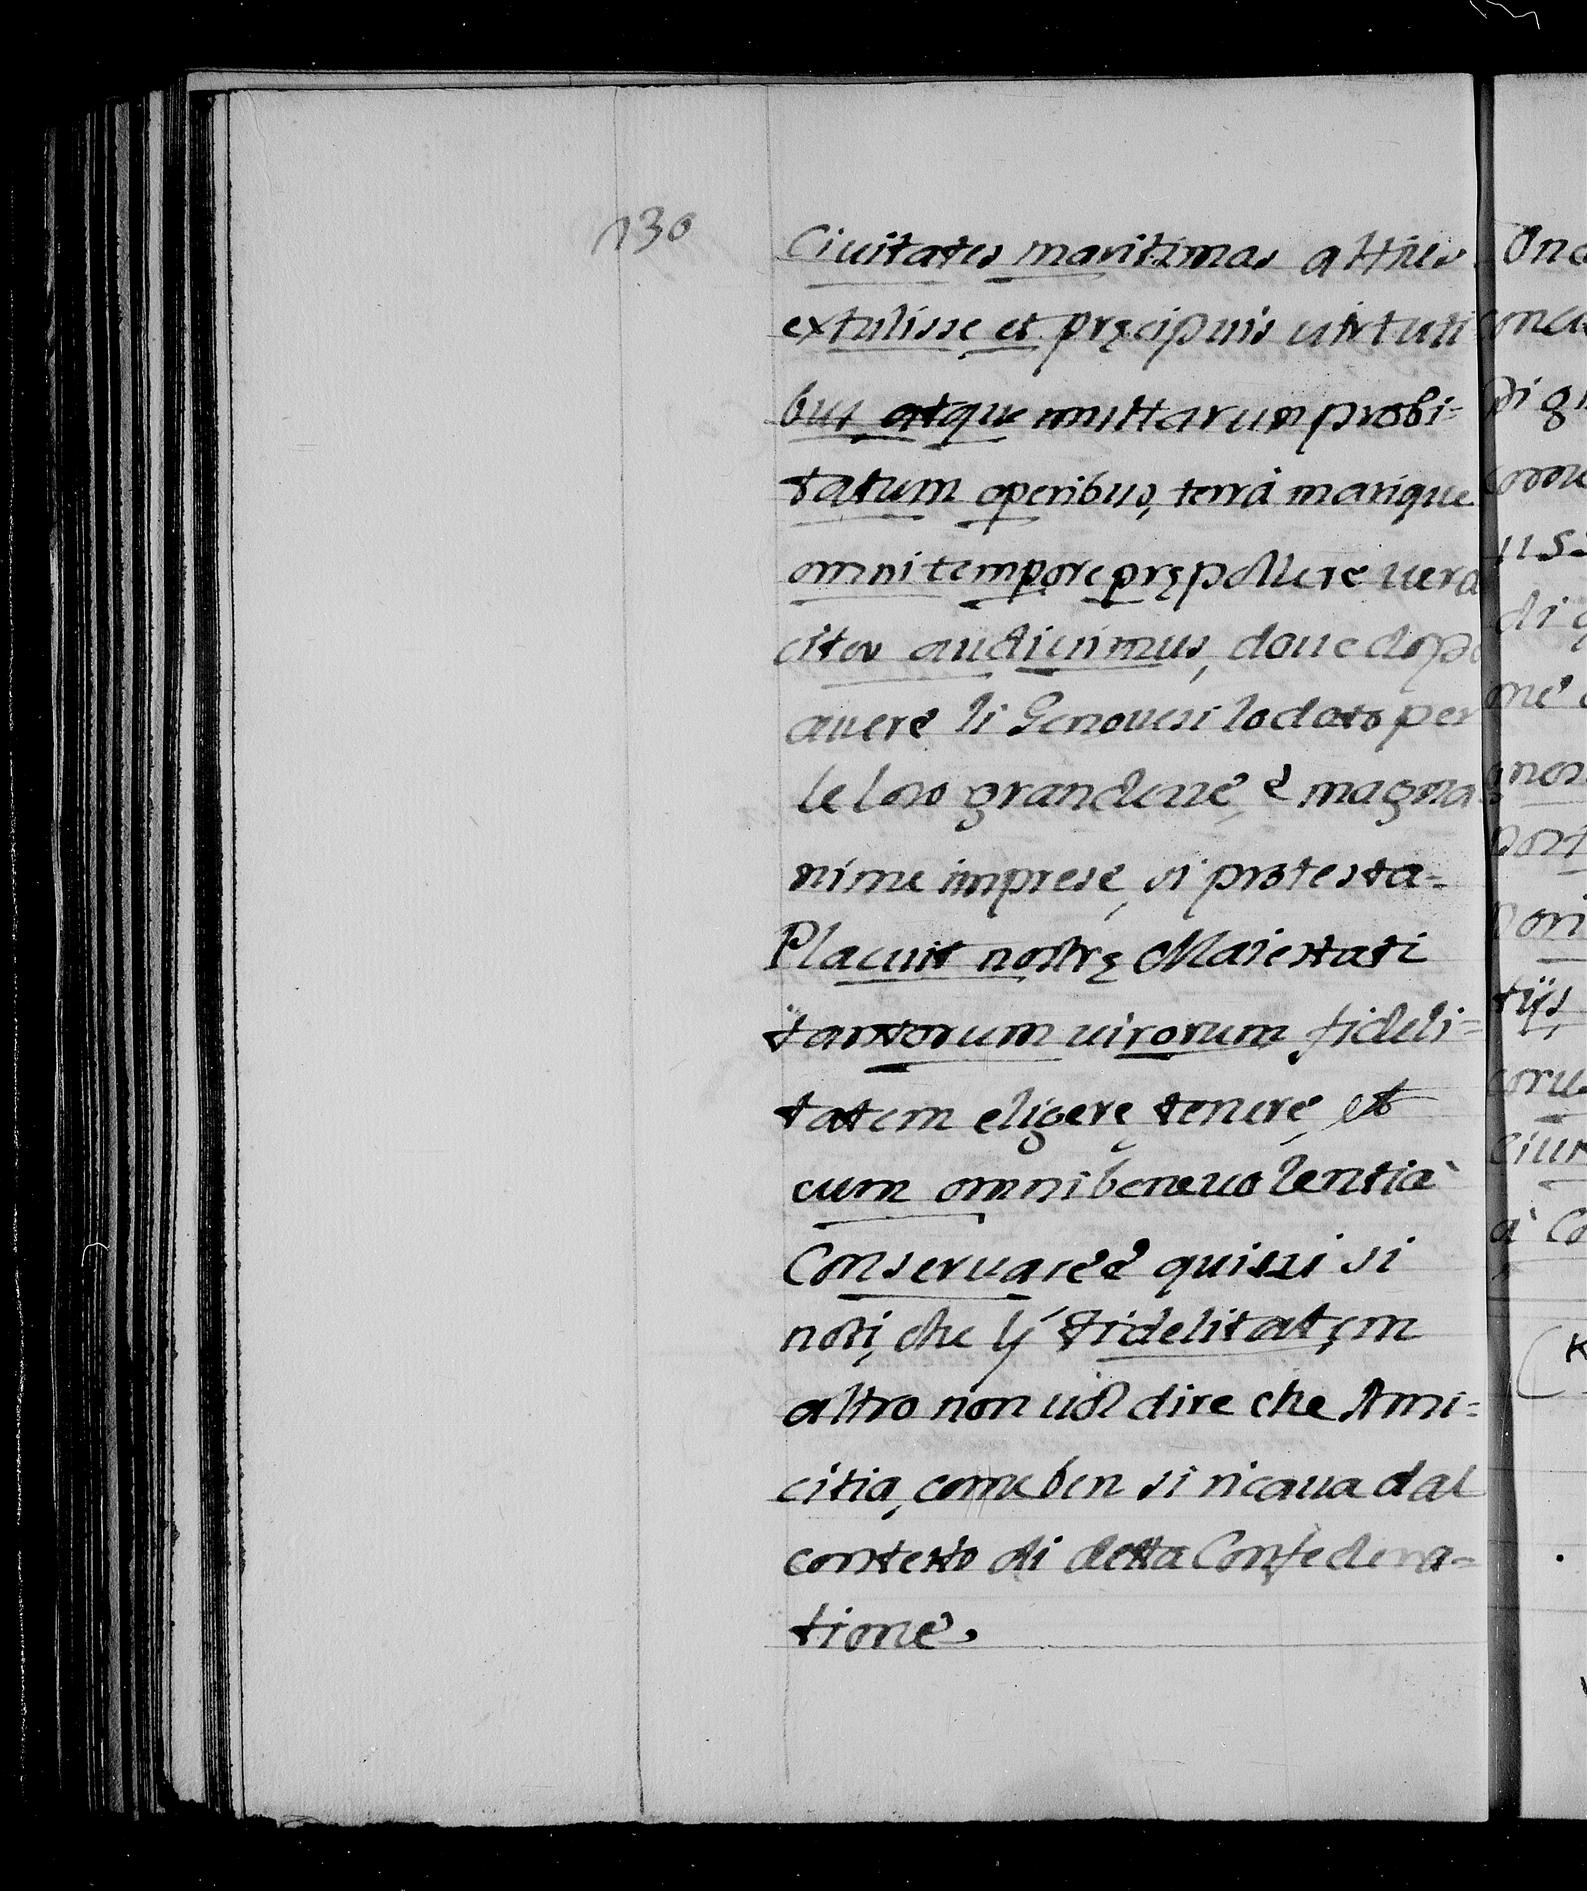 130
Ciuitates maritimas altius
extulisse, et pręcipuis uirtuti
bus, atque multarum probi=
tatum operibus, terrà marique
omni tempore prępollere uera
citer audiuimus, doue dopo
auere li Genouesi lodato per
le loro grandezze, è magna
nime imprese, si protesta=
Placuit nostrę Maiestati
tantorum uirorum fideli=
tatem eligere, tenere, et
cum omni beneuolentià
Conseruare è quiui si
noti, che lj Fidelitatem
altro non uol dire che Ami=
citia, come ben si ricaua dal
contesto di detta Confedera=
tione.